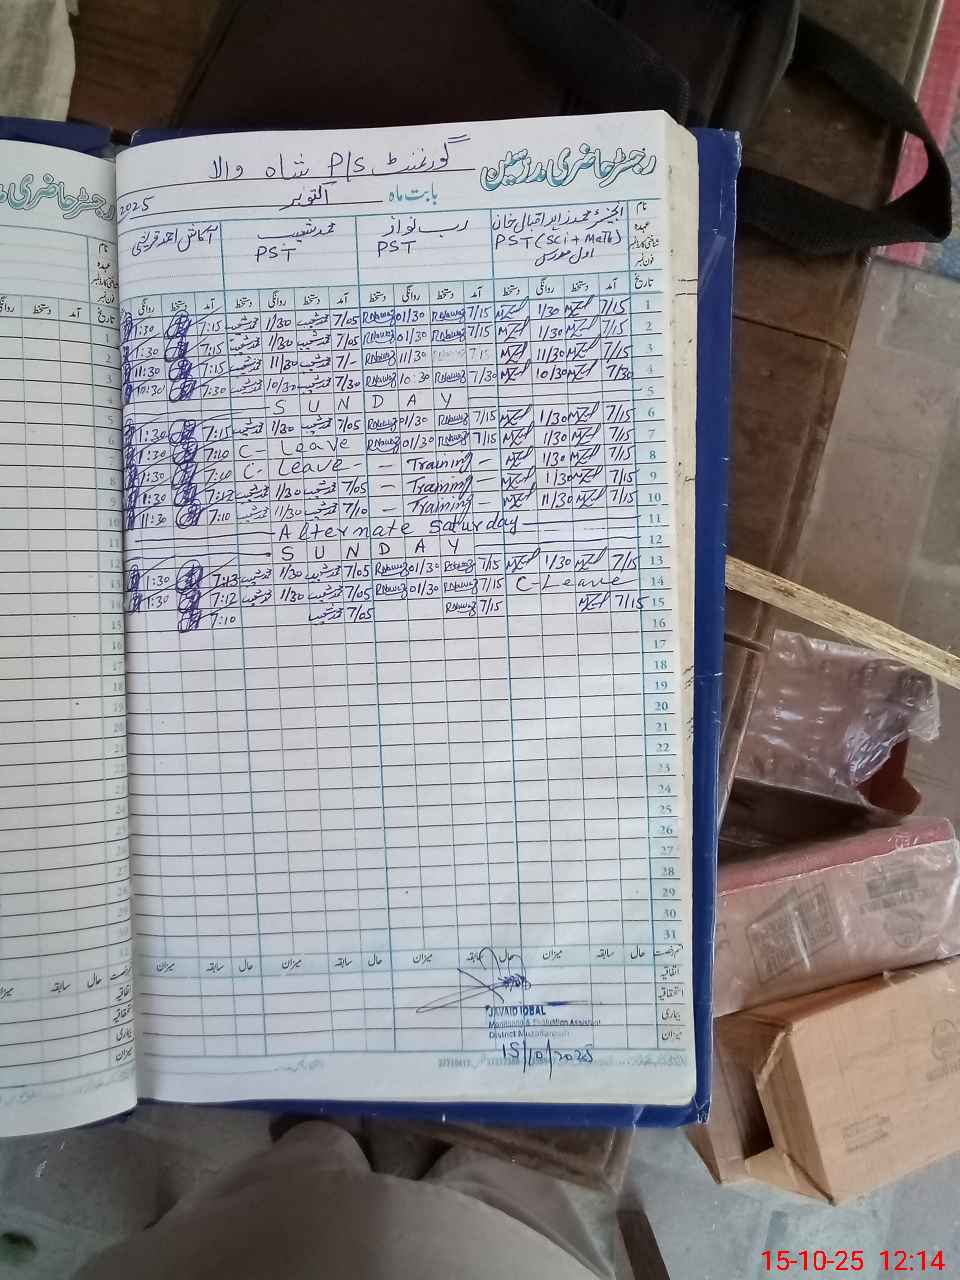 رجسٹر حاضری مدرسین گورنمنٹ P/S شاہ والا
بابت ماہ اکتوبر 2025
نام انجینئر محمد زاہد اقبال خان رب نواز محمد شعیب آکاش احمد قریشی
عہدہ PST (Sci + Math) PST PST
شناختی کارڈ نمبر اول مدرس
فون نمبر
تاریخ آمد دستخط روانگی دستخط آمد دستخط روانگی دستخط آمد دستخط روانگی دستخط آمد دستخط روانگی
1 7/15 1/30 7/15 Rabnawaz 01/30 Rabnawaz 7/05 محمد شعیب 1/30 محمد شعیب 7:15 1:30
2 7/15 1/30 7/15 Rabnawaz 01/30 Rabnawaz 7/05 محمد شعیب 1/30 محمد شعیب 7:15 1:30
3 7/15 11/30 7:15 Rabnawaz 11/30 Rabnawaz 7/- محمد شعیب 11/30 محمد شعیب 7:15 11:30
4 7/30 10/30 7/30 Rabnawaz 10:30 Rabnawaz 7/30 محمد شعیب 10/30 محمد شعیب 7:30 10:30
5 SUNDAY
6 7/15 1/30 7/15 Rabnawaz 01/30 Rabnawaz 7/05 محمد شعیب 1/30 محمد شعیب 7:15 1:30
7 7/15 1/30 7/15 Rabnawaz 01/30 Rabnawaz C- Leave 7:10 1:30
8 7/15 1/30 - - Training - C- Leave - 7:10 1:30
9 7/15 1/30 - Training - 7/05 محمد شعیب 1/30 محمد شعیب 7:12 1:30
10 7/15 11/30 - Training - 7/10 محمد شعیب 11/30 محمد شعیب 7:10 11:30
11 Alternate Saturday
12 SUNDAY
13 7/15 1/30 7/15 Rabnawaz 01/30 Rabnawaz 7/05 محمد شعیب 1/30 محمد شعیب 7:13 1:30
14 C-Leave 7/15 Rabnawaz 01/30 Rabnawaz 7/05 محمد شعیب 1/30 محمد شعیب 7:12 1:30
15 7/15 7/15 Rabnawaz 7/05 محمد شعیب 7:10
16
17
18
19
20
21
22
23
24
25
26
27
28
29
30
31
رخصت حال سابقہ میزان حال سابقہ میزان حال سابقہ میزان حال سابقہ میزان
اتفاقیہ
استحقاقیہ
بیماری
میزان
JAVAID IQBAL
Monitoring & Evaluation Assistant
District Muzaffargarh
15/10/2025
15-10-25 12:14